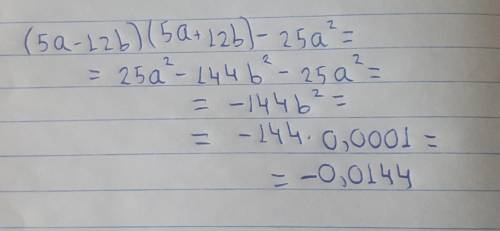 (5a-12b)(5a+12b)-25a²=
= 25a²-144b²-25a²=
= -144b²=
= -144·0,0001=
= -0,0144